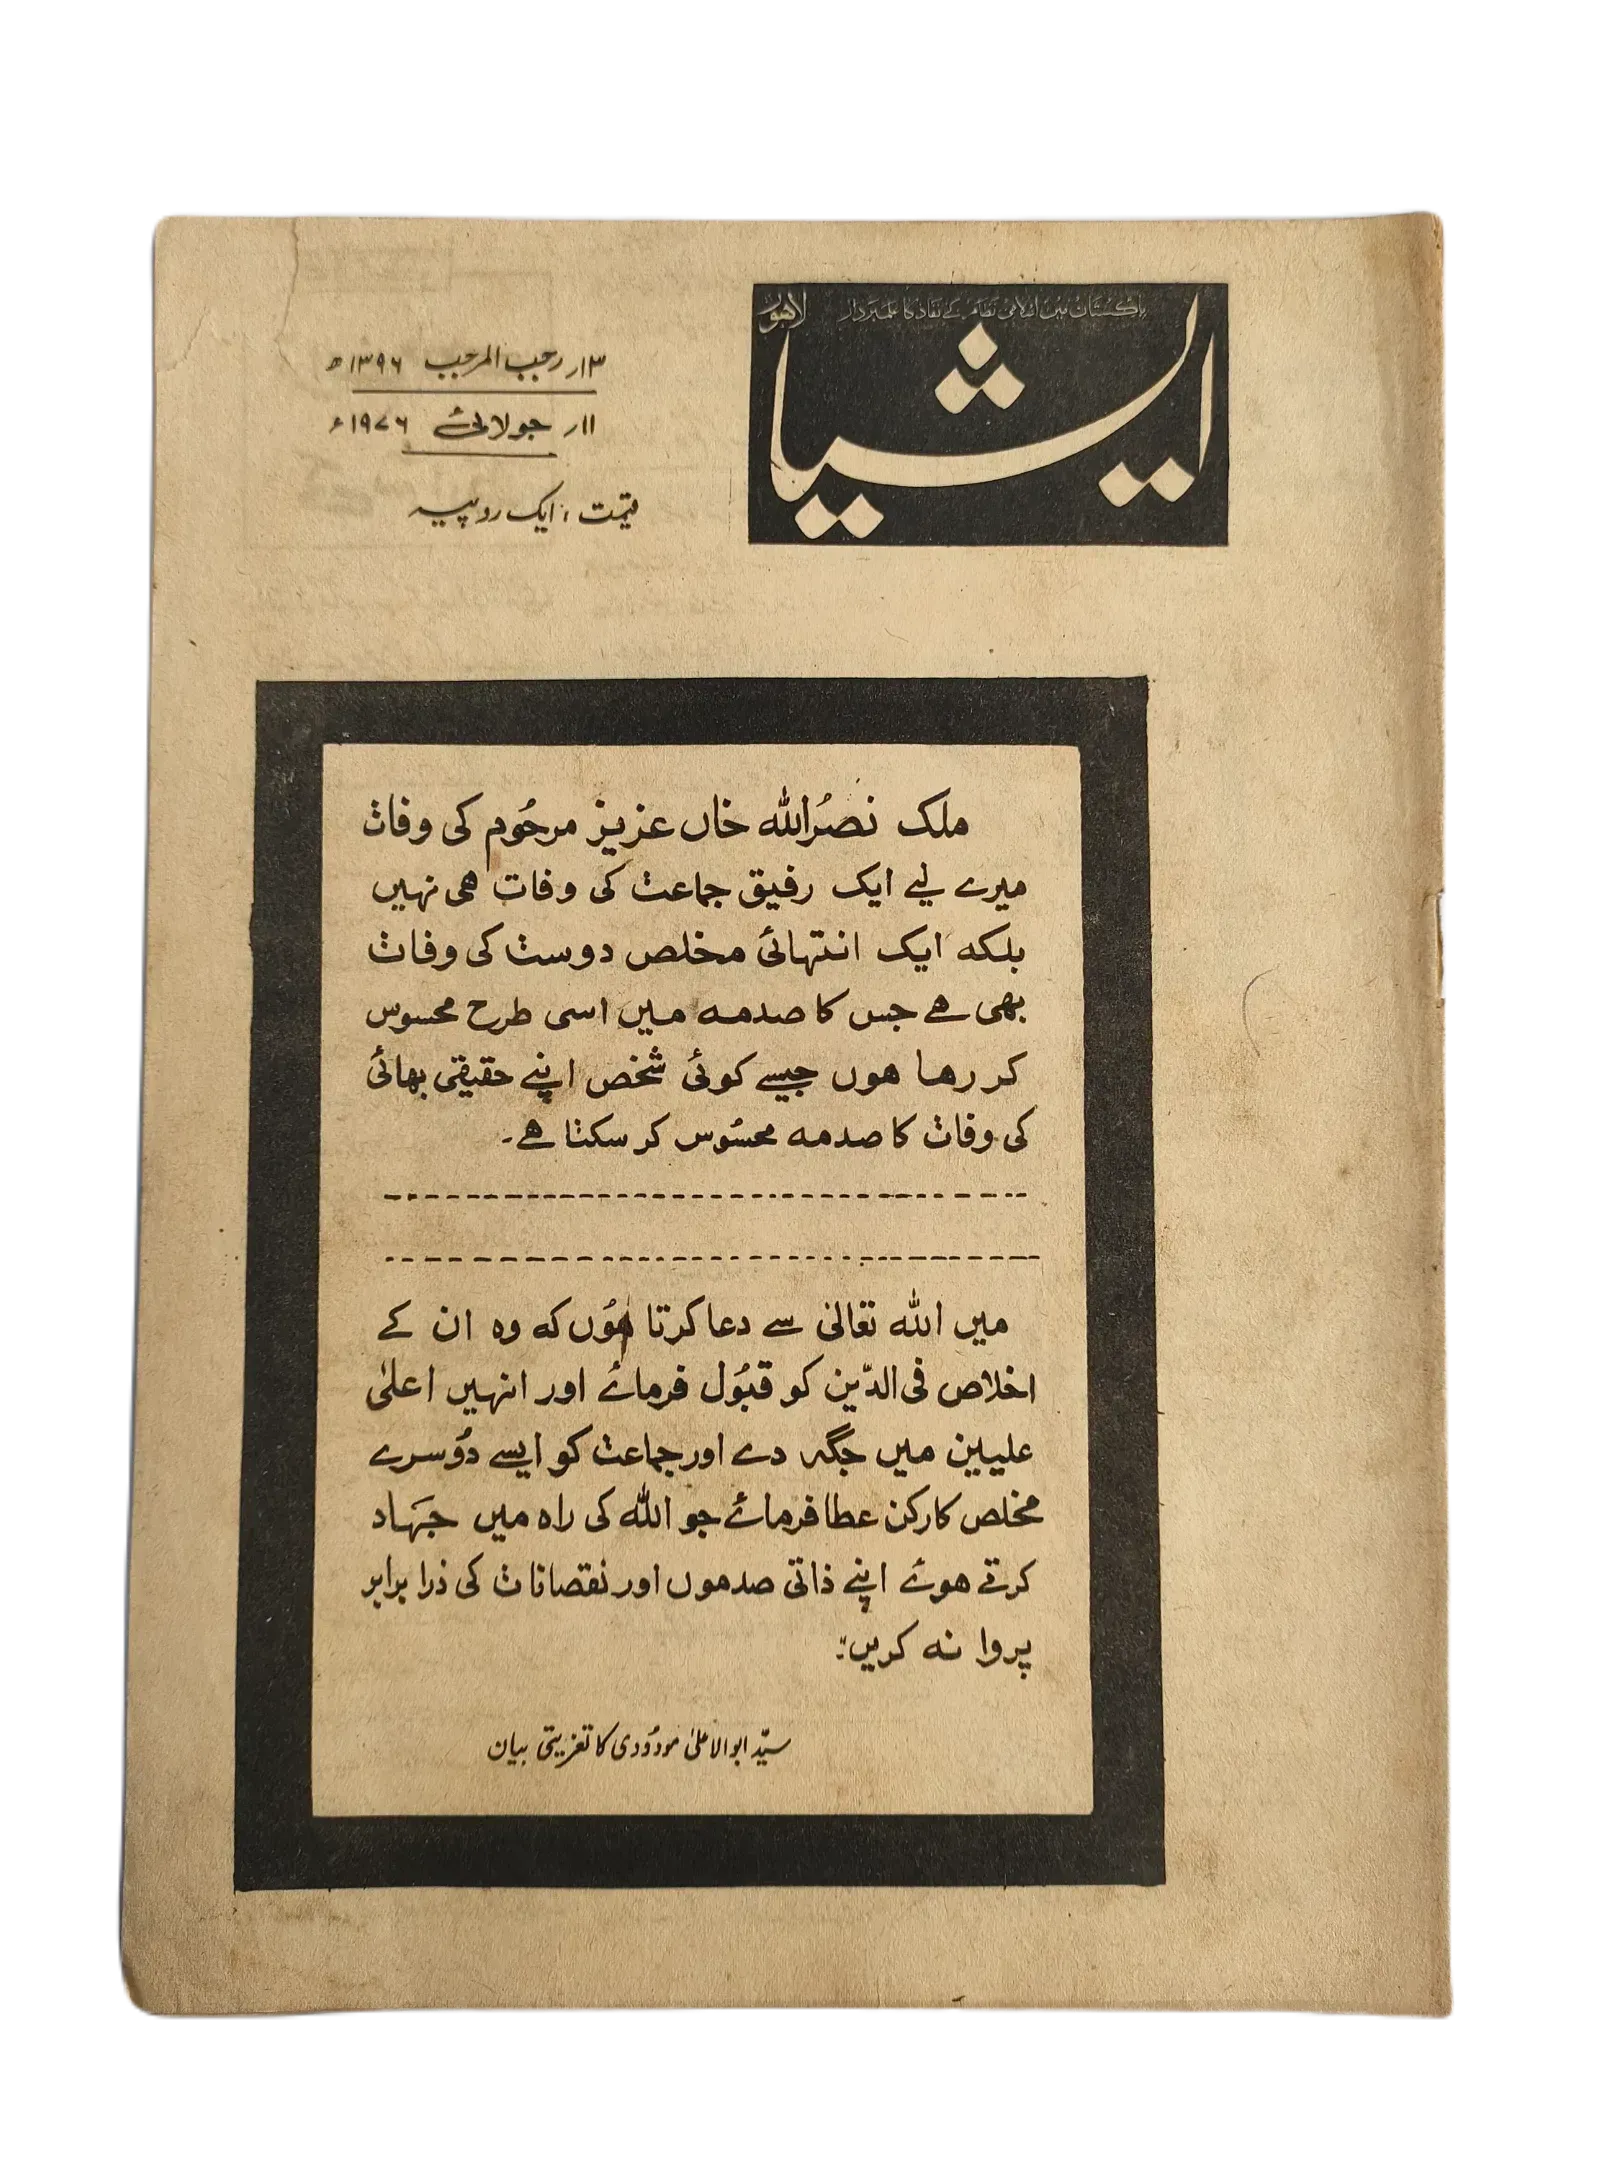 پاکستان میں اسلامی نظام کے نفاذ کا علمبردار
لاہور
ایشیا
۱۳ر رجب المرجب ۱۳۹۶ھ
۱۱ر جولائی ۱۹۷۶ء
قیمت : ایک روپیہ
ملک نصرُ اللہ خاں عزیز مرحُوم کی وفات
میرے لیے ایک رفیق جماعت کی وفات ھی نہیں
بلکہ ایک انتہائی مخلص دوست کی وفات
بھی ھے جس کا صدمہ میں اسی طرح محسوس
کر رھا ھوں جیسے کوئی شخص اپنے حقیقی بھائی
کی وفات کا صدمہ محسُوس کر سکتا ھے۔
میں اللہ تعالیٰ سے دعا کرتا ھُوں کہ وہ ان کے
اخلاص فی الدّین کو قبُول فرمائے اور انہیں اعلیٰ
علیین میں جگہ دے اور جماعت کو ایسے دُوسرے
مخلص کارکن عطا فرمائے جو اللہ کی راہ میں جہَاد
کرتے ھوئے اپنے ذاتی صدموں اور نقصانات کی ذرا برابر
پروا نہ کریں"۔
سیّد ابوالاعلیٰ مودُودی کا تعزیتی بیان